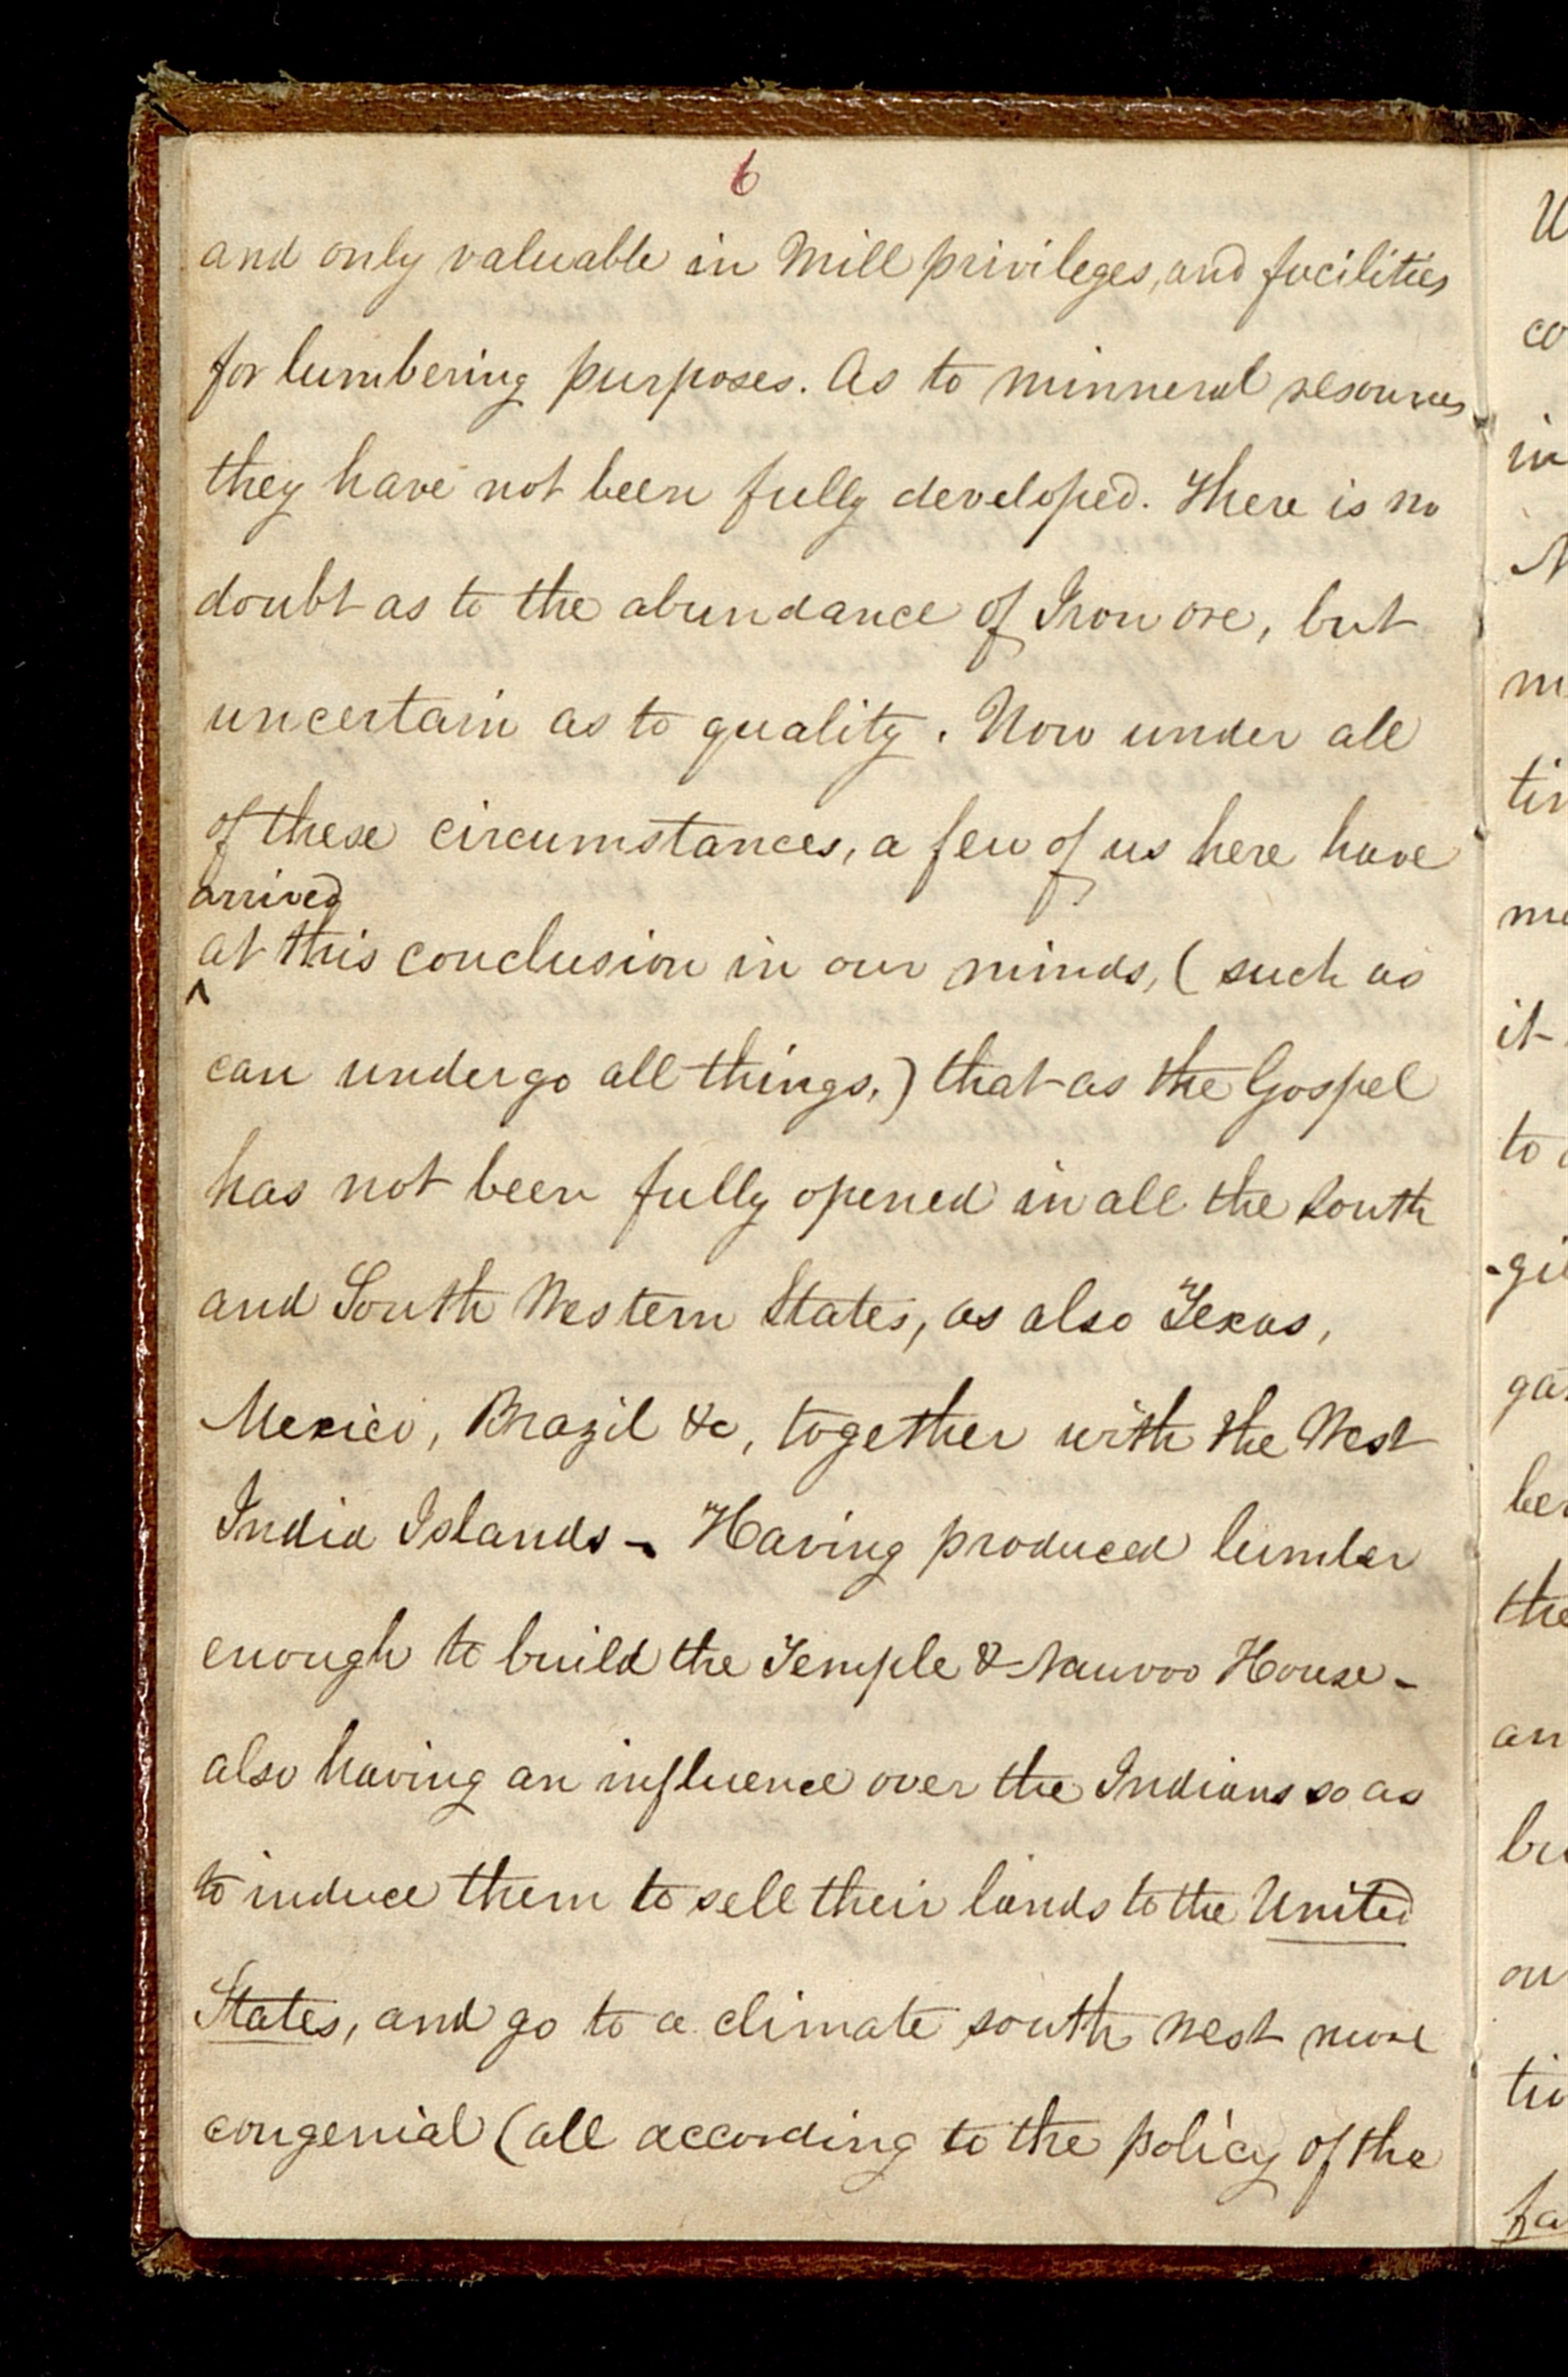 6
and only valuable in Mill privileges, and facilities
for lumbering purposes. As to minneral resources
they have not been fully developed. There is no
doubt as to the abundance of Iron ore, but
uncertain as to quality. Now under all
of these circumstances, a few of us here have
arrived
^at this conclusion in our minds, (such as
can undergo all things,) that as the Gospel
has not been fully opened in all the South
and South Western States, as also Texas,
Mexico, Brazil &c, together with the West
India Islands - Having produced lumber
enough to build the Temple & Nauvoo House -
also having an influence over the Indians so as
to induce them to sell their lands to the United
States, and go to a climate south west more
congenial (all according to the policy of the
co
in
m
it
to
the
an